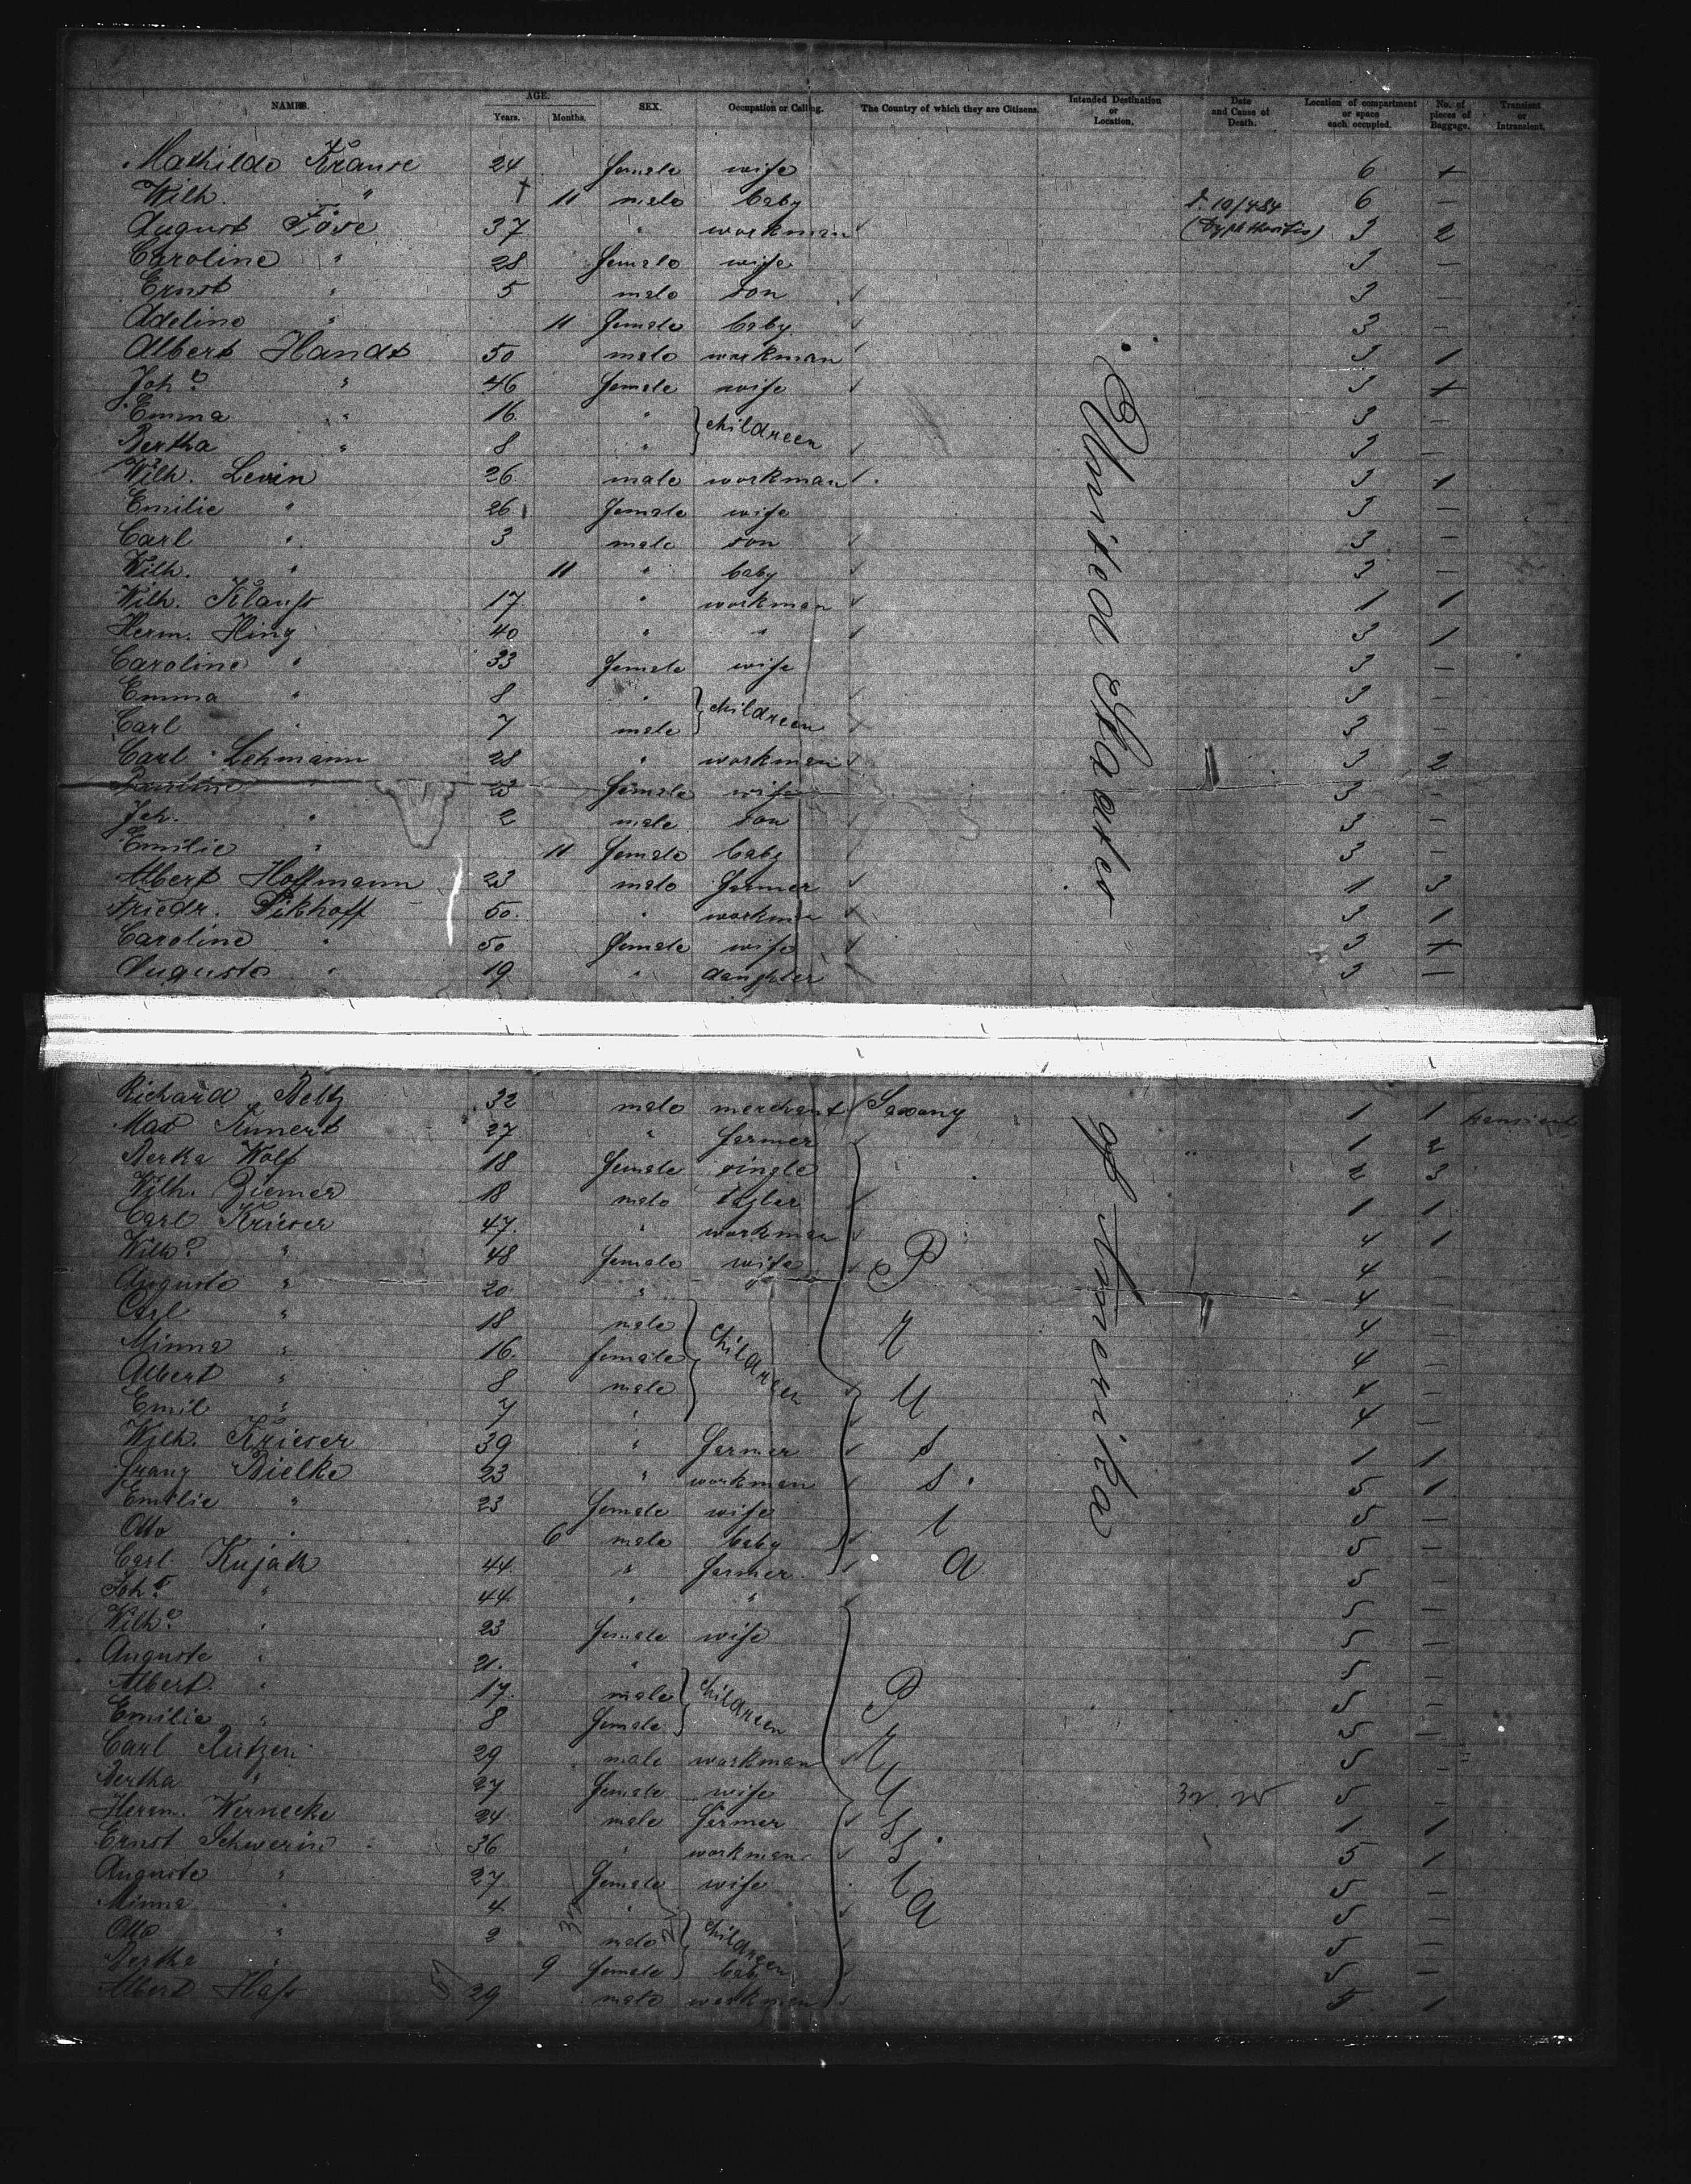 NAMES. AGE. Years. Months. SEX. Occupation or Calling. The Country of which they are Citizens. Intended Destination or Location. Date and Cause of Death. Location of compartment or space each occupied. No. of pieces of Baggage. Transient or Intransient.
Mathilde Krause 24 female wife 6 +
Wilh. " † 11 male baby d. 10/4 84 6 —
August Föse 37 " workman (Dyphtheritis) 3 2
Caroline " 28 female wife 3 —
Ernst " 5 male son 3 —
Adeline " 11 female baby 3 —
Albert Handt 50 male workman 3 1
Joh.e " 46 female wife 3 +
Emma " 16 " } childreen 3 —
Bertha " 8 " 3 —
Wilh. Levin 26 male workman 3 1
Emilie " 26 female wife 3 —
Carl " 3 male son 3 —
Wilh. " 11 " baby 3 —
Wilh. Klauss 17 " workman 1 1
Herm. Hinz 40 " " 3 1
Caroline " 33 female wife 3 —
Emma " 8 " } childreen 3 —
Carl " 7 male 3 —
Carl Lehmann 28 " workman 3 2
Pauline " 23 female wife 3 —
Joh. " 2 male son 3 —
Emilie " 11 female baby 3 —
Albert Hoffmann 23 male farmer 1 3
Friedr. Pikhoff 50 " workman 3 1
Caroline " 50 female wife 3 +
Auguste " 19 " daughter 3 —
United States
Richard Beltz 32 male merchant Saxony 1 1 transient
Max Kunert 27 " farmer 1 2
Berka Wolf 18 female single 2 3
Wilh. Ziemer 18 male 1 1
Carl Krieser 47 " workman 4 1
Wilh.e " 48 female wife 4 —
Auguste " 20 " 4 —
Carl " 18 male } childreen 4 —
Minna " 16 female 4 —
Albert " 8 male 4 —
Emil " 7 " 4 —
Wilh. Krieser 39 " farmer 1 1
Franz Bielke 23 " workman 5 1
Emilie " 23 female wife 5 —
Otto " 6 male baby 5 —
Carl Kujath 44 " farmer 5 —
Joh. " 44 " " 5 —
Wilh.e " 23 female wife 5 —
Auguste " 21 " 5 —
Albert " 17 male } childreen 5 —
Emilie " 8 female 5 —
Carl Rutzen 29 male workman 5 —
Bertha " 27 female wife 5 —
Herm. Wernecke 24 male farmer 1 1
Ernst Schwerin 36 " workman 5 1
Auguste " 27 female wife 5 —
Minna " 4 " } childreen 5 —
Otto " 2 male 5 —
Bertha " 9 female baby 5 —
Albert Hass 29 male workman 5 1
of Amerika
Prussia
Prussia